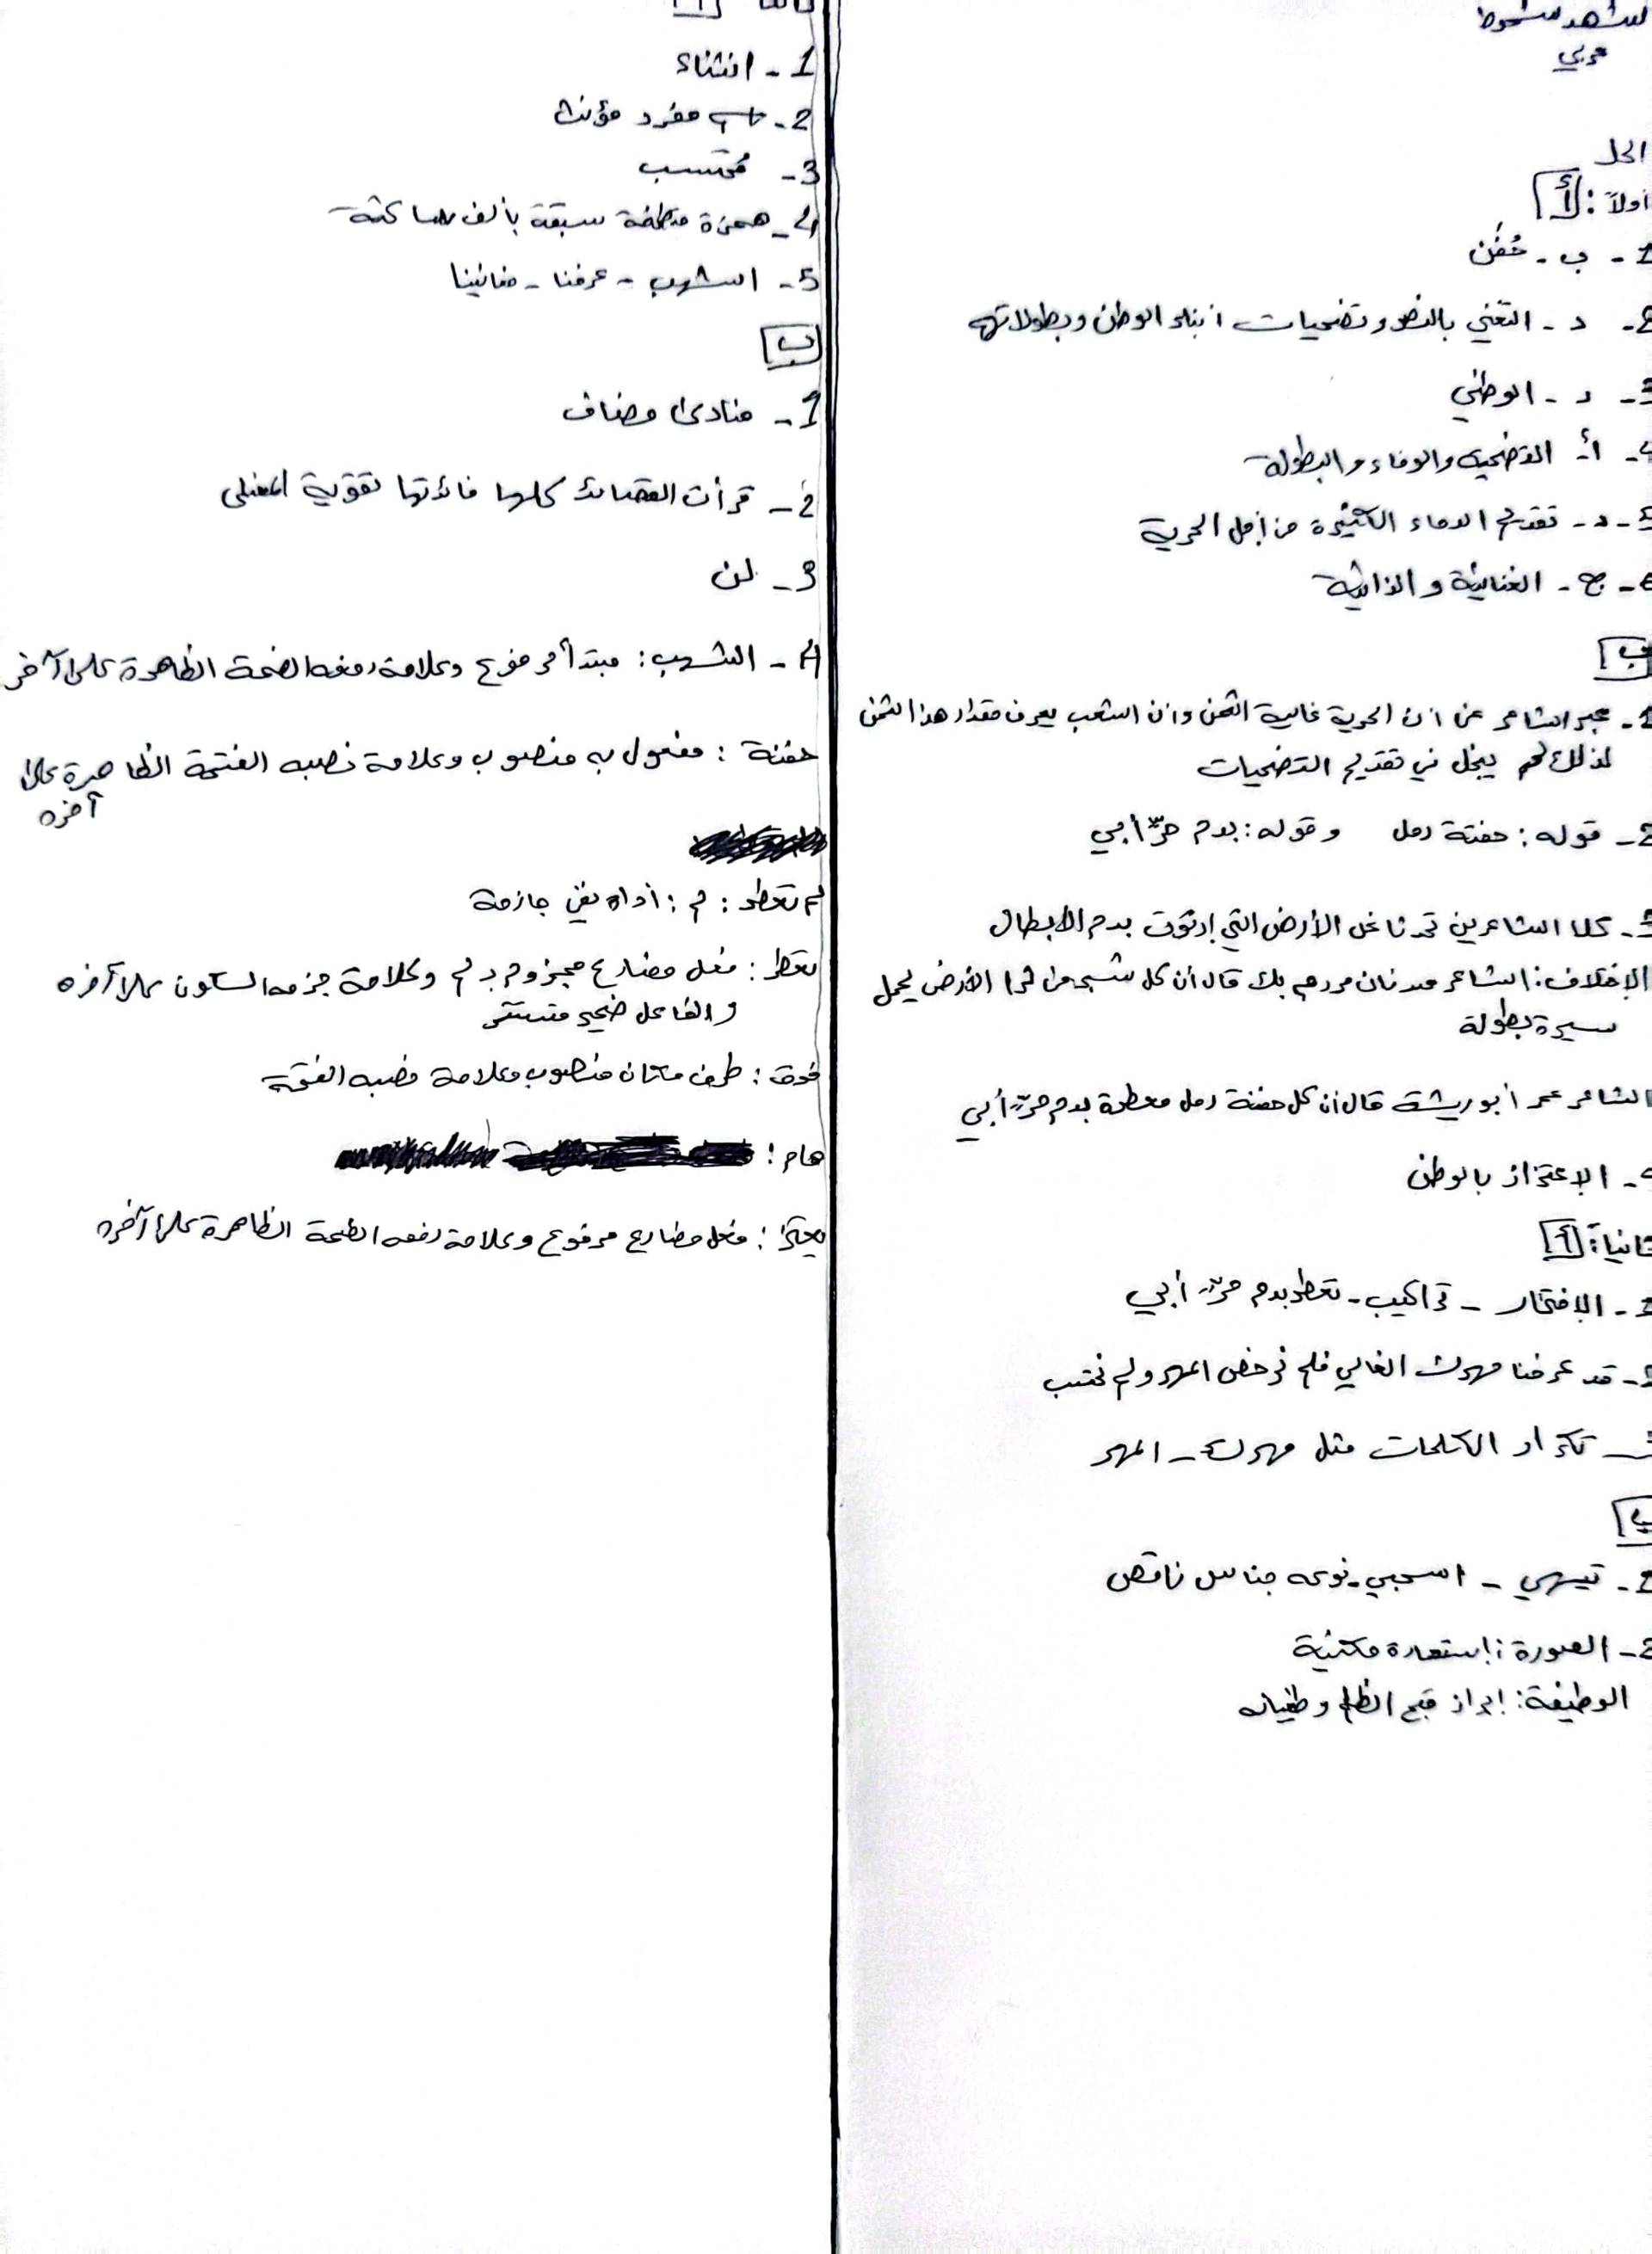 عربي
الحل
أولاً: أ
1 - ب - حُفَن
2 - د - التغني بالنصر وتضحيات أبناء الوطن وبطولاتهم
3 - د - الوطني
4 - أ - التضحية والوفاء والبطولة
5 - د - تقديم الدماء الكثيرة من أجل الحرية
6 - ج - الغنائية والذاتية
ب
1 - عبر الشاعر عن ان الحرية غالية الثمن وان الشعب يعرف مقدار هذا الثمن
لذلك لم يبخل في تقديم التضحيات
2 - قوله: حفنة رمل وقوله: بدم حرّ أبي
3 - كلا الشاعرين تحدثا عن الأرض التي إرتوت بدم الأبطال
الإختلاف: الشاعر عدنان مردم بك قال أن كل شبر من ثرا الأرض يحمل
سيرة بطولة
الشاعر عمر أبو ريشة قال أن كل حفنة رمل معطرة بدم حرٍّ أبي
4 - الإعتزاز بالوطن
ثانياً: أ
1 - الإفتخار - تراكيب - تعطر بدم حرٍّ أبي
2 - قد عرفنا مهرك الغالي فلم نرخص المهر ولم نحتسب
3 - تكرار الكلمات مثل مهرك - المهر
ب
1 - تيهي - اسحبي - نوعه جناس ناقص
2 - الصورة: إستعارة مكنية
الوظيفة: إبراز قبح الظلم وطغيانه
ثالثاً أ
1 - انشاء
2 - مفرد مؤنث
3 - مُحتسب
4 - همزة متطرفة سبقة بألف ساكنة
5 - الشهب - عرفنا - مغانينا
ب
1 - منادى مضاف
2 - قرأت القصائد كلها فائدتها تقوية المعنى
3 - لن
4 - الشهب: مبتدأ مرفوع وعلامة رفعه الضمة الظاهرة على آخر
حفنة: مفعول به منصوب وعلامة نصبه الفتحة الظاهرة على
آخره
لم تعطر: لم: أداه نفي جازمة
تعطر: فعل مضارع مجزوم بـ لم وعلامة جزمه السكون على آخره
والفاعل ضمير مستتر
فوق: ظرف مكان منصوب وعلامة نصبه الفتحة
هام:
فعل مضارع مرفوع وعلامة رفعه الضمة الظاهرة على آخره